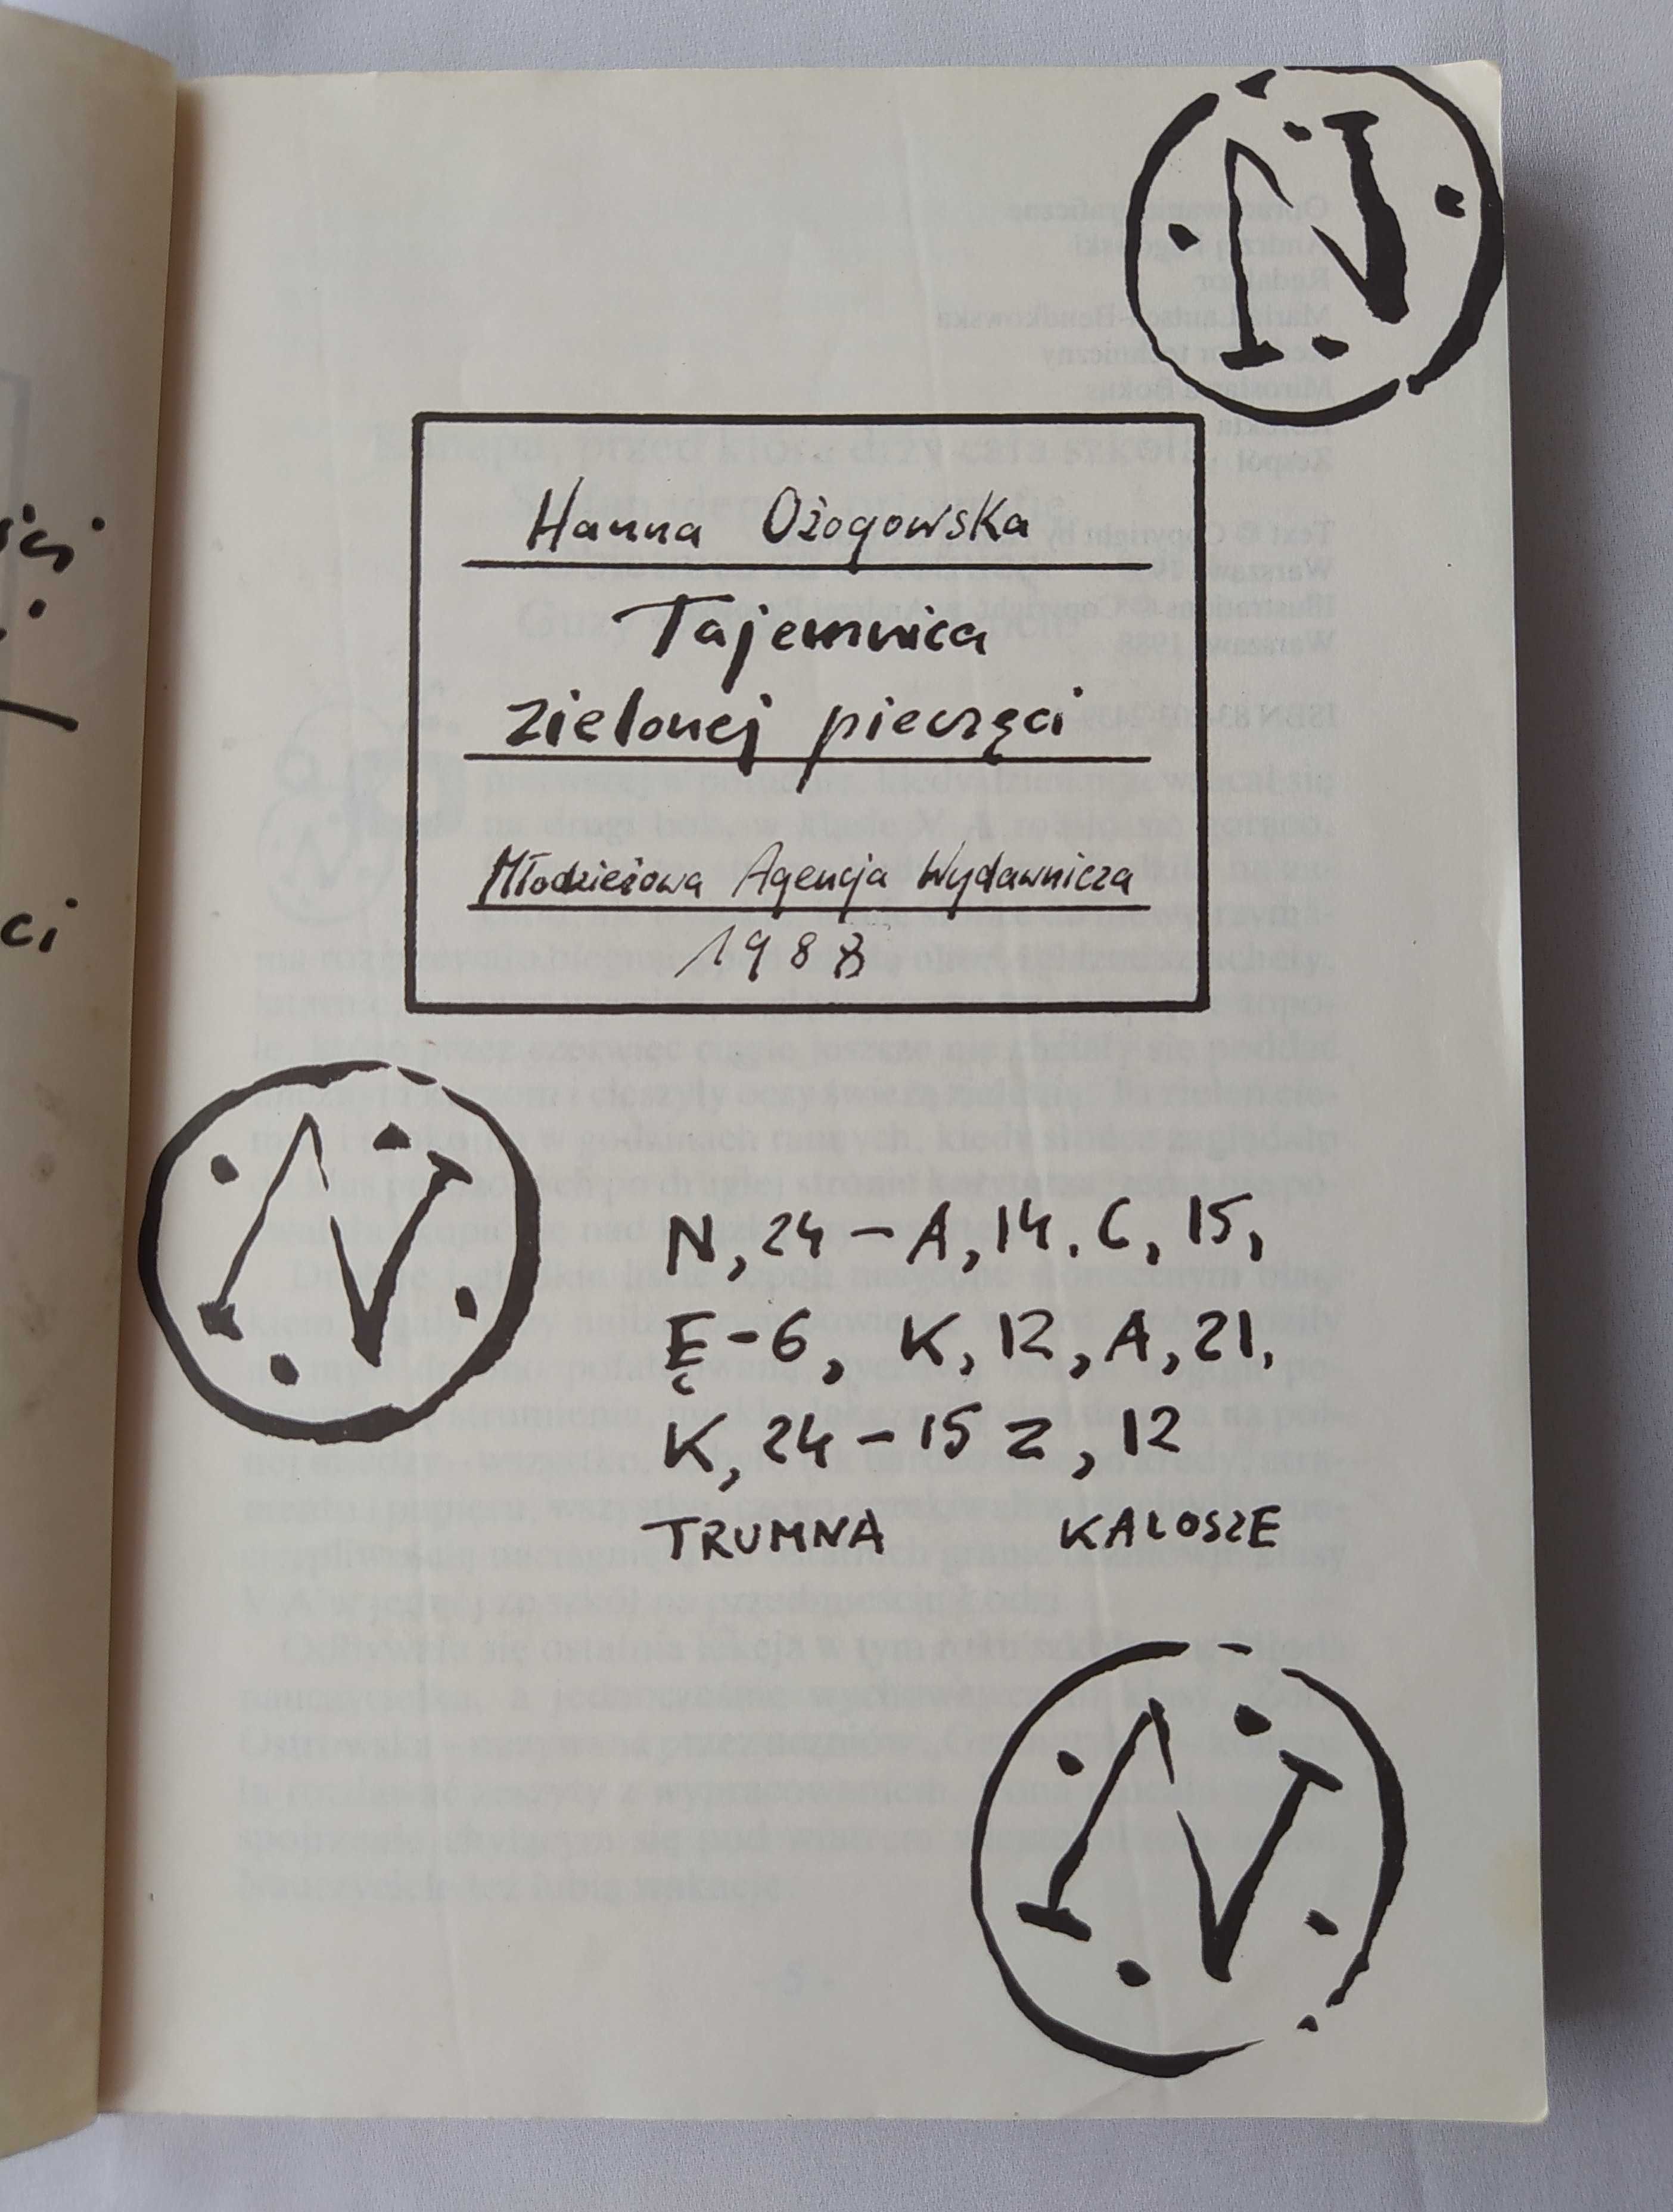 N
Hanna Ożogowska
Tajemnica
zielonej pieczęci
Młodzieżowa Agencja Wydawnicza
1988
N
N, 24 – A, 14. C, 15,
Ę – 6, K, 12, A, 21,
K, 24 – 15 Z, 12
TRUMNA KALOSZE
N
ci